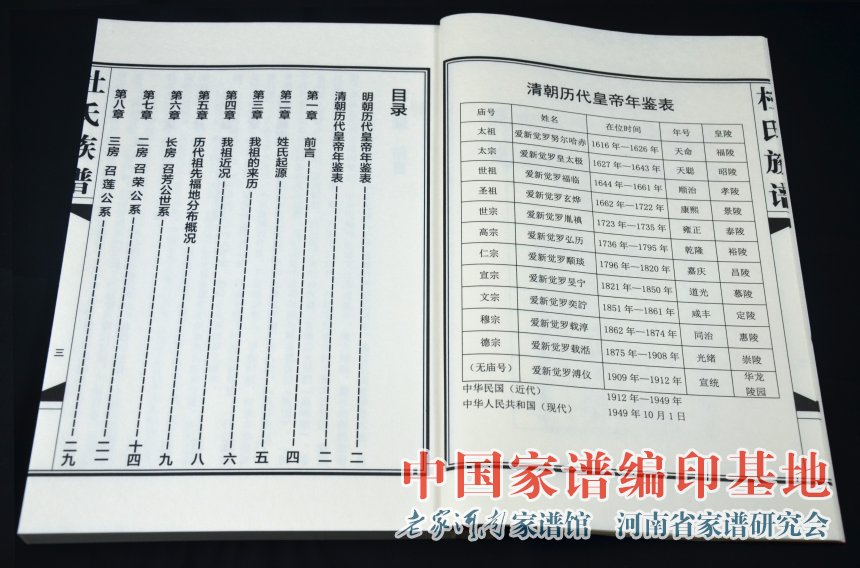 目录
明朝历代皇帝年鉴表 二
清朝历代皇帝年鉴表 二
第一章 前言 四
第二章 姓氏起源 五
第三章 我祖的来历 六
第四章 我祖近况 八
第五章 历代祖先福地分布概况 九
第六章 长房 召芳公世系 十四
第七章 二房 召荣公系 二一
第八章 三房 召莲公系 二九
杜氏族谱
三
清朝历代皇帝年鉴表
庙号 姓名 在位时间 年号 皇陵
太祖 爱新觉罗努尔哈赤 1616 年—1626 年 天命 福陵
太宗 爱新觉罗皇太极 1627 年—1643 年 天聪 昭陵
世祖 爱新觉罗福临 1644 年—1661 年 顺治 孝陵
圣祖 爱新觉罗玄烨 1662 年—1722 年 康熙 景陵
世宗 爱新觉罗胤禛 1723 年—1735 年 雍正 泰陵
高宗 爱新觉罗弘历 1736 年—1795 年 乾隆 裕陵
仁宗 爱新觉罗颙琰 1796 年—1820 年 嘉庆 昌陵
宣宗 爱新觉罗旻宁 1821 年—1850 年 道光 慕陵
文宗 爱新觉罗奕詝 1851 年—1861 年 咸丰 定陵
穆宗 爱新觉罗载淳 1862 年—1874 年 同治 惠陵
德宗 爱新觉罗载湉 1875 年—1908 年 光绪 崇陵
(无庙号) 爱新觉罗溥仪 1909 年—1912 年 宣统 华龙陵园
中华民国（近代） 1912 年—1949 年
中华人民共和国（现代） 1949 年 10 月 1 日
杜氏族谱
中国家谱编印基地
老家河南家谱馆 河南省家谱研究会